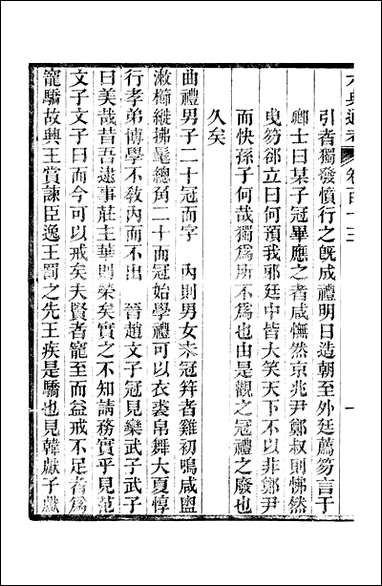 六典通考 卷百十三 一
引者獨發憤行之旣成禮明日造朝至外廷薦笏言于
卿士曰某子冠畢應之者咸憮然京兆尹鄭叔則怫然
曳笏郤立曰何預我邪廷中皆大笑天下不以非鄭尹
而快孫子何哉獨爲所不爲也由是觀之冠禮之廢也
久矣
曲禮男子二十冠而字 內則男女未冠笄者雞初鳴咸盥
漱櫛縰拂髦總角二十而冠始學禮可以衣裘帛舞大夏惇
行孝弟博學不敎內而不出 晉趙文子冠見欒武子武子
曰美哉昔吾逮事莊主華則榮矣實之不知請務實乎見范
文子文子曰而今可以戒矣夫賢者寵至而益戒不足者爲
寵驕故興王賞諫臣逸王罰之先王疾是驕也見韓獻子獻